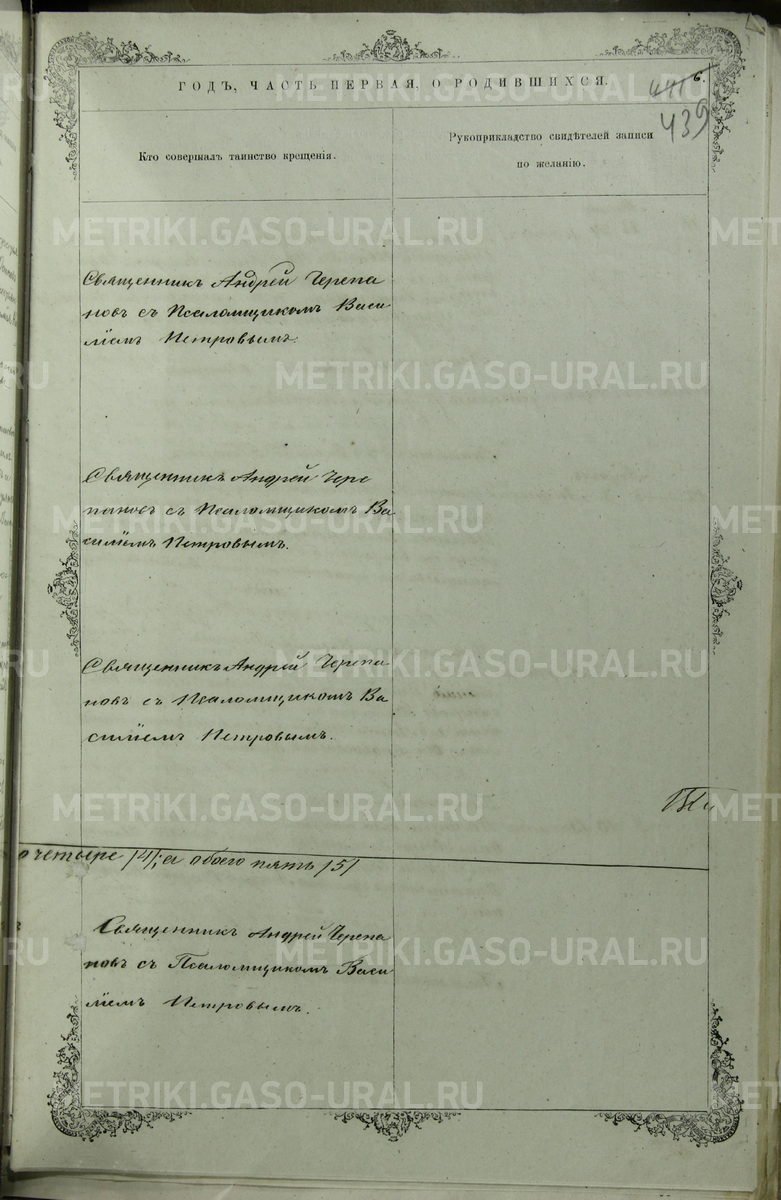 ГОДЪ, ЧАСТЬ ПЕРВАЯ, О РОДИВШИХСЯ.
6.
439
Кто совершалъ таинство крещенія.
Рукоприкладство свидѣтелей записи
по желанію.
Священникъ Андрей Черепа
новъ съ Псаломщикомъ Васи
ліемъ Петровымъ.
Священникъ Андрей Чере
пановъ съ Псаломщикомъ Ва
силіемъ Петровымъ.
Священникъ Андрей Черепа
новъ съ Псаломщикомъ Ва
силіемъ Петровымъ.
о четыре /4/, а обоего пять /5/
Священникъ Андрей Черепа
новъ съ Псаломщикомъ Васи
ліемъ Петровымъ.
METRIKI.GASO-URAL.RU